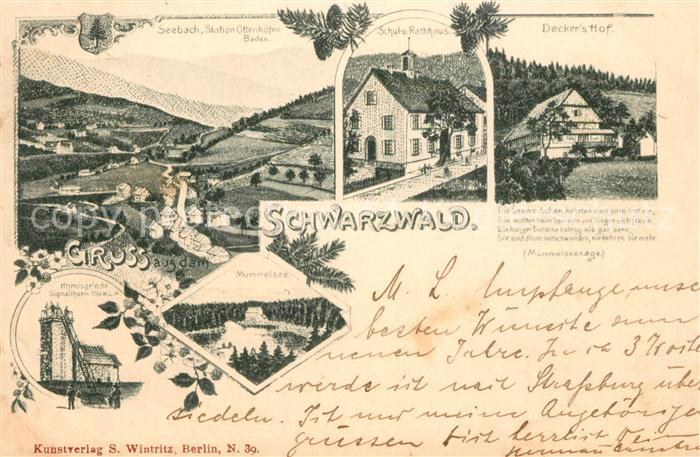 Seebach, Station Ottenhöfen
Baden.
Schul- u. Rathhaus.
Decker's Hof.
SCHWARZWALD.
GRUSS aus dem
Die Seeweibchen kehrten einst gerne hier ein,
Sie wollten beim Spinnen und Singen sich freu'n
Ein lustiger Bursche betrog sie gar sehr,
Sie sind drum verschwunden, sie kehren nie mehr
(Mummelseesage.)
Hornisgrinde
Signalthurm
Mummelsee.
M. L. Empfange unse
besten Wünsche zum
neuen Jahre. In ca 3 Woche
werde ich nach Straßburg über
siedeln. Ich und meine Angehörige
grüssen Dich herzlich Dein
Hermann
Kunstverlag S. Wintritz, Berlin, N. 39.